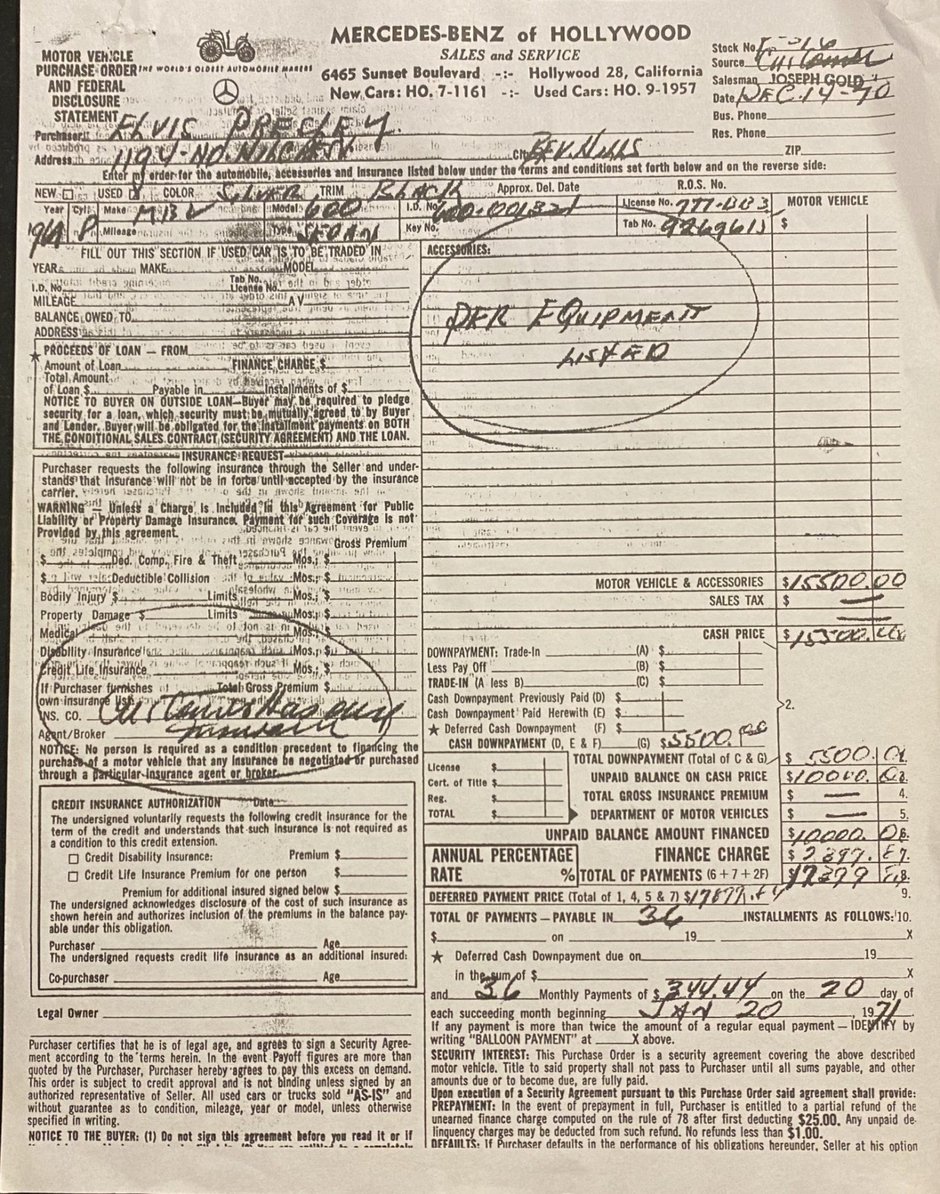 MERCEDES-BENZ of HOLLYWOOD
SALES and SERVICE
THE WORLD'S OLDEST AUTOMOBILE MAKERS
6465 Sunset Boulevard -:- Hollywood 28, California
New Cars: HO. 7-1161 -:- Used Cars: HO. 9-1957
MOTOR VEHICLE
PURCHASE ORDER
AND FEDERAL
DISCLOSURE
STATEMENT
Stock No.
Source Customer
Salesman JOSEPH GOLD
Date DEC-14-70
Bus. Phone
Res. Phone
Purchaser ELVIS PRESLEY
Address 1194-NO. HILLCREST City BEV. HILLS ZIP
Enter my order for the automobile, accessories and insurance listed below under the terms and conditions set forth below and on the reverse side:
NEW USED COLOR SILVER TRIM BLACK Approx. Del. Date R.O.S. No.
Year 1969 Cyl. 8 Make MBZ Model 600 I.D. No. 600-001321 License No. 777-DB3
Mileage Type SEDAN Key No. Tab No. 9269615
MOTOR VEHICLE
$
FILL OUT THIS SECTION IF USED CAR IS TO BE TRADED IN
YEAR MAKE MODEL
I.D. No. Tab No. License No.
MILEAGE AV
BALANCE OWED TO
ADDRESS
★ PROCEEDS OF LOAN – FROM
Amount of Loan FINANCE CHARGE $
Total Amount
of Loan $ Payable in Installments of $
NOTICE TO BUYER ON OUTSIDE LOAN—Buyer may be required to pledge
security for a loan, which security must be mutually agreed to by Buyer
and Lender. Buyer will be obligated for the installment payments on BOTH
THE CONDITIONAL SALES CONTRACT (SECURITY AGREEMENT) AND THE LOAN.
INSURANCE REQUEST
Purchaser requests the following insurance through the Seller and under-
stands that insurance will not be in force until accepted by the insurance
carrier.
WARNING – Unless a Charge is Included in this Agreement for Public
Liability or Property Damage Insurance. Payment for such Coverage is not
Provided by this agreement.
Gross Premium
$ Ded. Comp. Fire & Theft Mos.; $
$ Deductible Collision Mos.; $
Bodily Injury $ Limits Mos.; $
Property Damage $ Limits Mos.; $
Medical Mos.; $
Disability Insurance Mos.; $
Credit Life Insurance Mos.; $
If Purchaser furnishes Total Gross Premium $
own insurance list:
INS. CO. Customer Has own
Agent/Broker Insurance
NOTICE: No person is required as a condition precedent to financing the
purchase of a motor vehicle that any insurance be negotiated or purchased
through a particular insurance agent or broker.
CREDIT INSURANCE AUTHORIZATION Date
The undersigned voluntarily requests the following credit insurance for the
term of the credit and understands that such insurance is not required as
a condition to this credit extension.
Credit Disability Insurance: Premium $
Credit Life Insurance Premium for one person $
Premium for additional insured signed below $
The undersigned acknowledges disclosure of the cost of such insurance as
shown herein and authorizes inclusion of the premiums in the balance pay-
able under this obligation.
Purchaser Age
The undersigned requests credit life insurance as an additional insured:
Co-purchaser Age
Legal Owner
Purchaser certifies that he is of legal age, and agrees to sign a Security Agree-
ment according to the terms herein. In the event Payoff figures are more than
quoted by the Purchaser, Purchaser hereby agrees to pay this excess on demand.
This order is subject to credit approval and is not binding unless signed by an
authorized representative of Seller. All used cars or trucks sold "AS-IS" and
without guarantee as to condition, mileage, year or model, unless otherwise
specified in writing.
NOTICE TO THE BUYER: (1) Do not sign this agreement before you read it or if
ACCESSORIES:
PER EQUIPMENT
LISTED
MOTOR VEHICLE & ACCESSORIES $15500.00
SALES TAX $ —
CASH PRICE $15500.00
DOWNPAYMENT: Trade-In (A) $
Less Pay Off (B) $
TRADE-IN (A less B) (C) $
Cash Downpayment Previously Paid (D) $
Cash Downpayment Paid Herewith (E) $
★ Deferred Cash Downpayment (F) $
CASH DOWNPAYMENT (D, E & F) (G) $5500.00
2.
TOTAL DOWNPAYMENT (Total of C & G) $ 5500
License $ UNPAID BALANCE ON CASH PRICE $10000.
Cert. of Title $ TOTAL GROSS INSURANCE PREMIUM $ — 4.
Reg. $
TOTAL $ DEPARTMENT OF MOTOR VEHICLES $ — 5.
UNPAID BALANCE AMOUNT FINANCED $10000.
ANNUAL PERCENTAGE FINANCE CHARGE $
RATE % TOTAL OF PAYMENTS (6 + 7 + 2F) $
DEFERRED PAYMENT PRICE (Total of 1, 4, 5 & 7) $ 9.
TOTAL OF PAYMENTS – PAYABLE IN 36 INSTALLMENTS AS FOLLOWS: 10.
$ on 19 X
★ Deferred Cash Downpayment due on 19
in the sum of $ X
and 36 Monthly Payments of $ 344.44 on the 20 day of
each succeeding month beginning JAN 20, 1971
If any payment is more than twice the amount of a regular equal payment – IDENTIFY by
writing "BALLOON PAYMENT" at X above.
SECURITY INTEREST: This Purchase Order is a security agreement covering the above described
motor vehicle. Title to said property shall not pass to Purchaser until all sums payable, and other
amounts due or to become due, are fully paid.
Upon execution of a Security Agreement pursuant to this Purchase Order said agreement shall provide:
PREPAYMENT: In the event of prepayment in full, Purchaser is entitled to a partial refund of the
unearned finance charge computed on the rule of 78 after first deducting $25.00. Any unpaid de-
linquency charges may be deducted from such refund. No refunds less than $1.00.
DEFAULTS: If Purchaser defaults in the performance of his obligations hereunder, Seller at his option